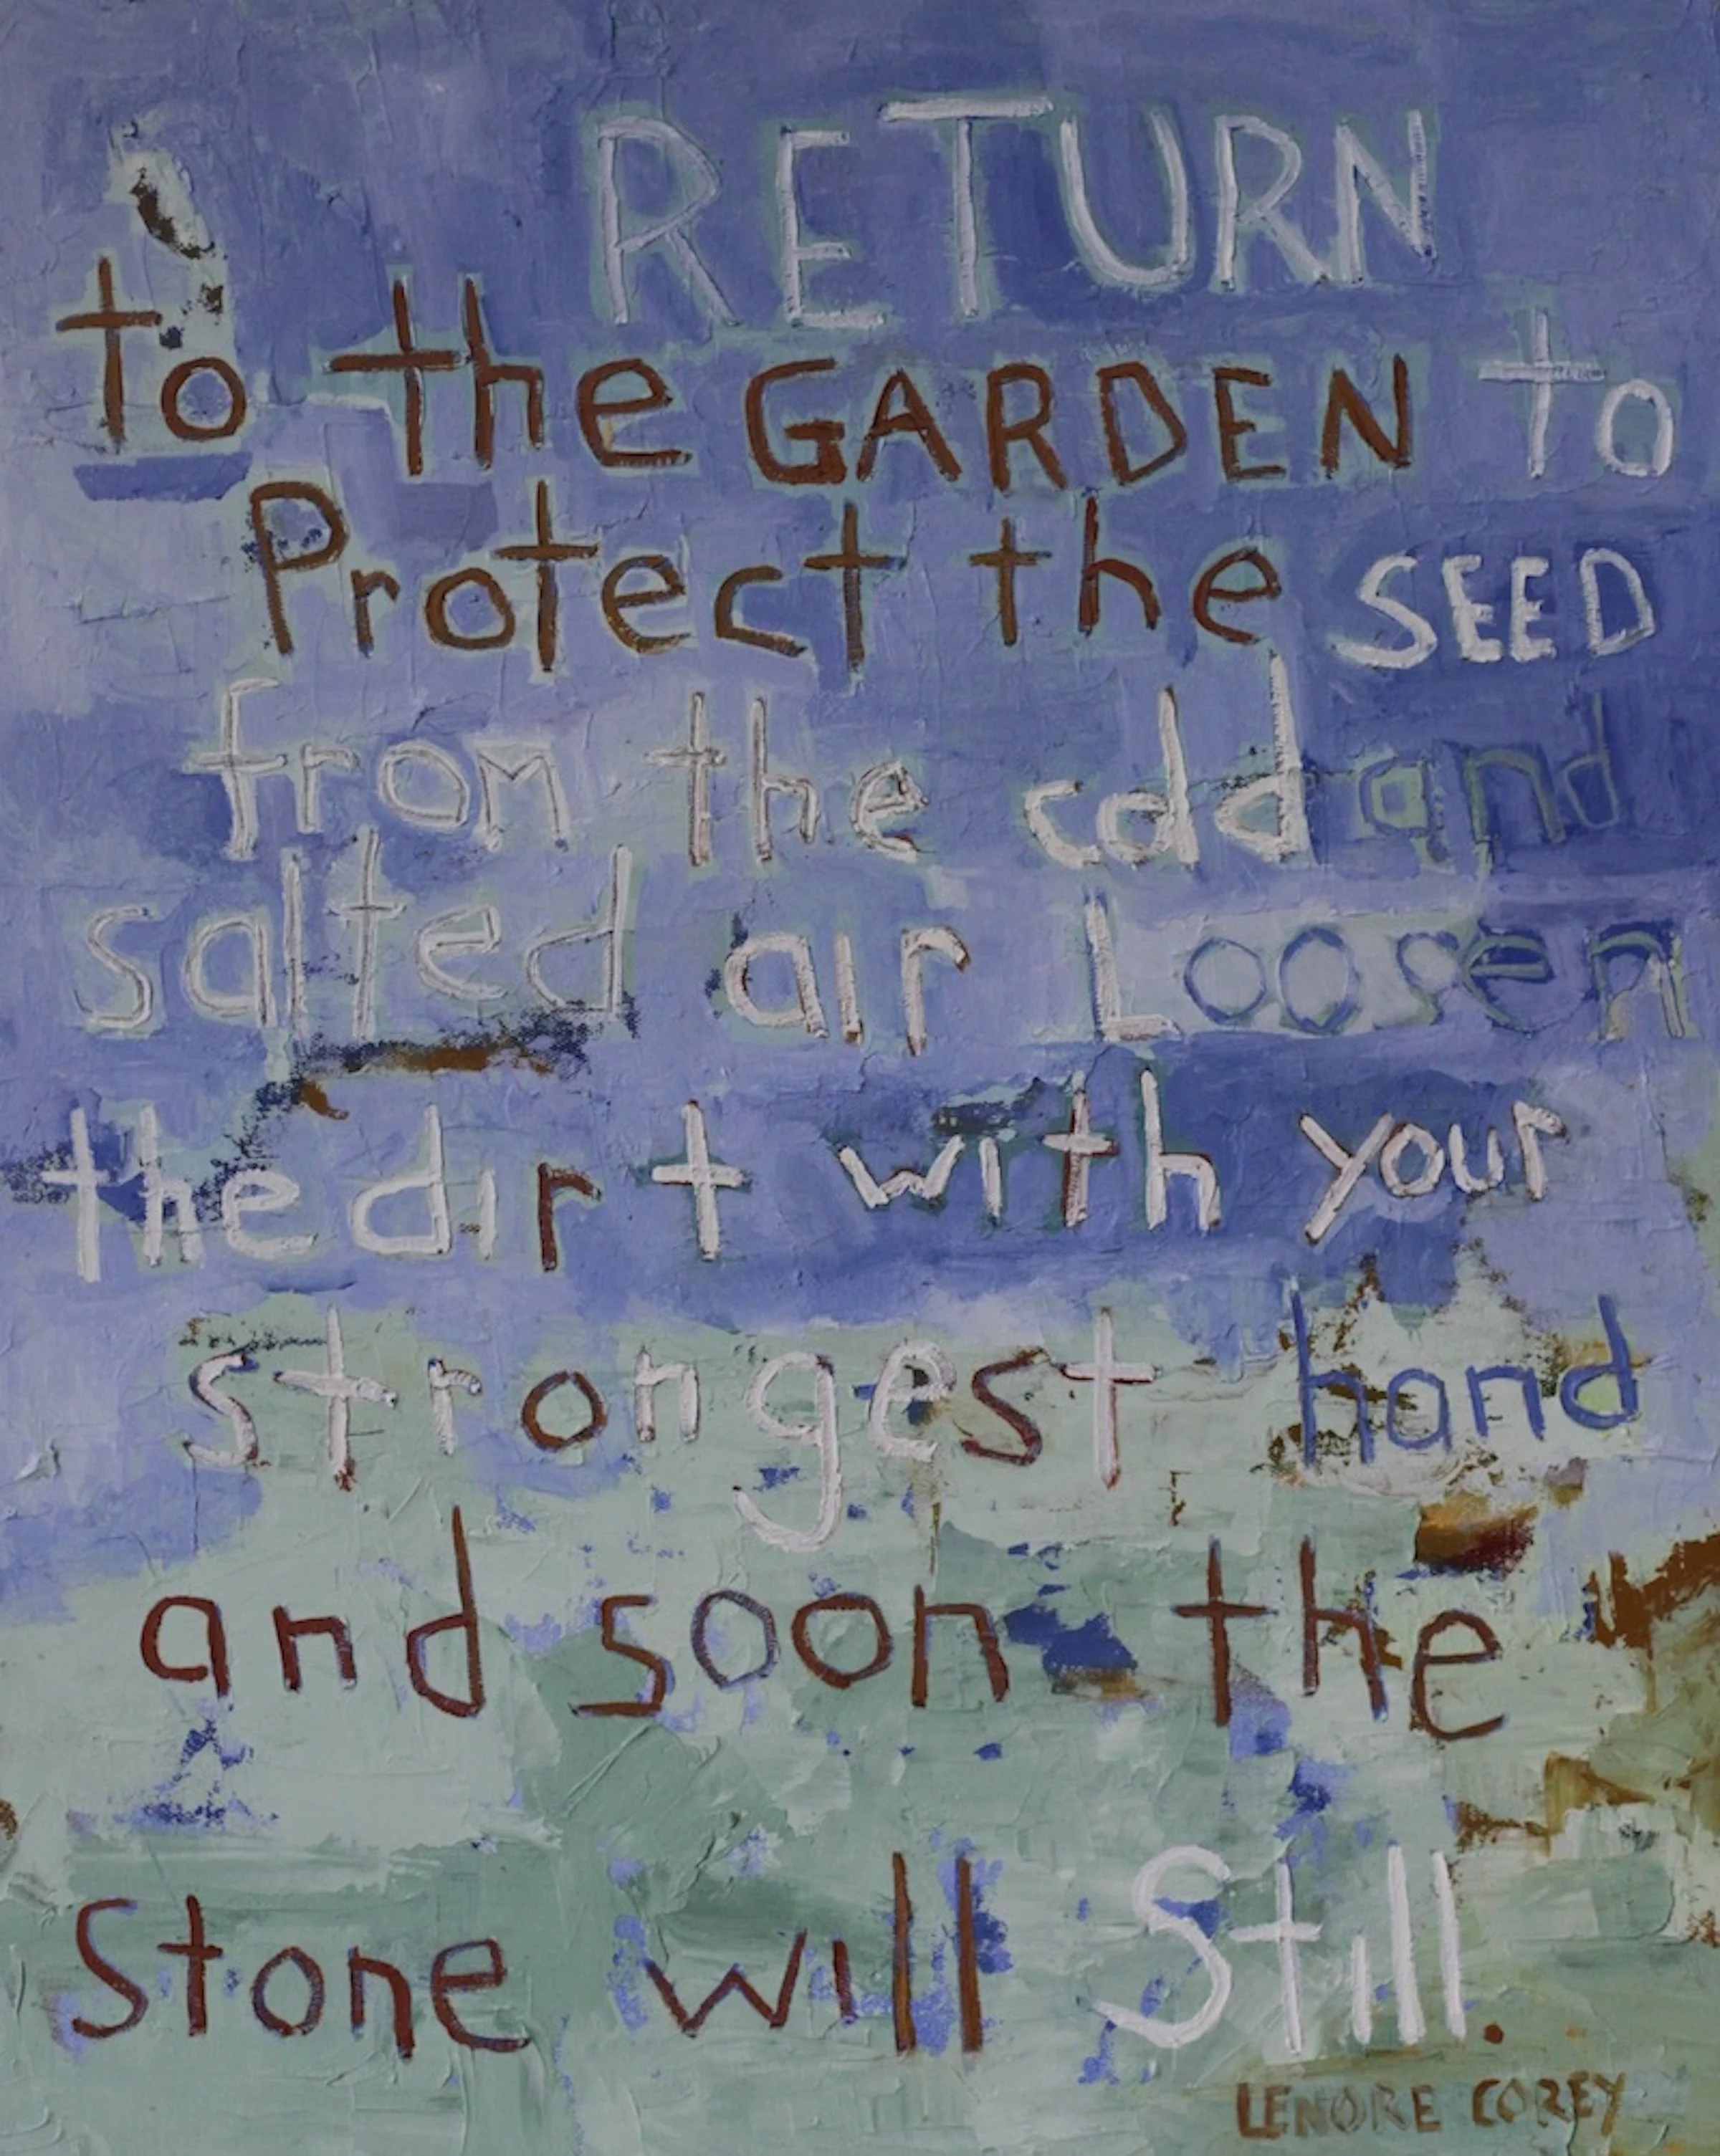 RETURN
to the GARDEN to
Protect the SEED
from the cold and
salted air Loosen
the dirt with your
strongest hand
and soon the
Stone will Still.
LENORE COREY